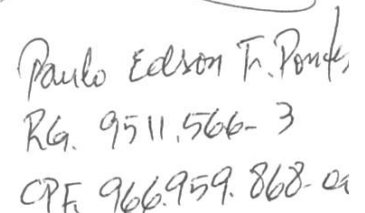 Paulo Edson Fr.
RG. 9511.566-3
CPF. 966.959.868-